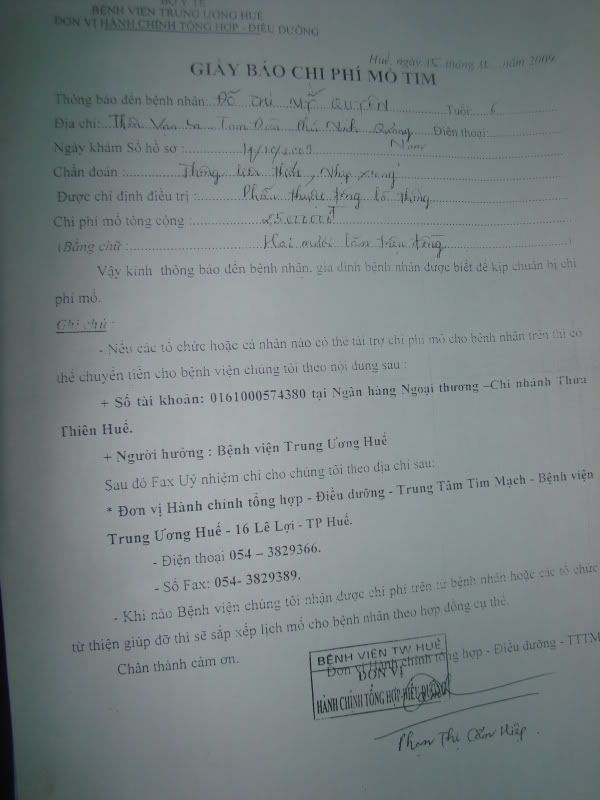 BỘ Y TẾ
BỆNH VIỆN TRUNG ƯƠNG HUẾ
ĐƠN VỊ HÀNH CHÍNH TỔNG HỢP - ĐIỀU DƯỠNG
Huế, ngày 15 tháng 11 năm 2009
GIẤY BÁO CHI PHÍ MỔ TIM
Thông báo đến bệnh nhân: ĐỖ THỊ MỸ QUYÊN Tuổi: 6
Địa chỉ: Thôn Tam Dân Phú Ninh Quảng Nam Điện thoại:
Ngày khám Số hồ sơ: 19/10/2009
Chẩn đoán : Thông liên thất,
Được chỉ định điều trị : Phẫu thuật đóng lỗ thông
Chi phí mổ tổng cộng : 25.000.000đ
(Bằng chữ : Hai mươi lăm triệu đồng )
Vậy kính thông báo đến bệnh nhân, gia đình bệnh nhân được biết để kịp chuẩn bị chi
phí mổ.
Ghi chú :
- Nếu các tổ chức hoặc cá nhân nào có thể tài trợ chi phí mổ cho bệnh nhân trên thì có
thể chuyển tiền cho bệnh viện chúng tôi theo nội dung sau :
+ Số tài khoản: 0161000574380 tại Ngân hàng Ngoại thương –Chi nhánh Thừa
Thiên Huế.
+ Người hưởng : Bệnh viện Trung Ương Huế
Sau đó Fax Uỷ nhiệm chi cho chúng tôi theo địa chỉ sau:
* Đơn vị Hành chính tổng hợp - Điều dưỡng - Trung Tâm Tim Mạch - Bệnh viện
Trung Ương Huế - 16 Lê Lợi - TP Huế.
- Điện thoại 054 – 3829366.
- Số Fax: 054- 3829389.
- Khi nào Bệnh viện chúng tôi nhận được chi phí trên từ bệnh nhân hoặc các tổ chức
từ thiện giúp đỡ thì sẽ sắp xếp lịch mổ cho bệnh nhân theo hợp đồng cụ thể.
Chân thành cảm ơn.
Đơn vị Hành chính tổng hợp - Điều dưỡng - TTTM
BỆNH VIỆN TW HUẾ
ĐƠN VỊ
HÀNH CHÍNH TỔNG HỢP-ĐIỀU DƯỠNG
Phạm Thị Cẩm Hiệp